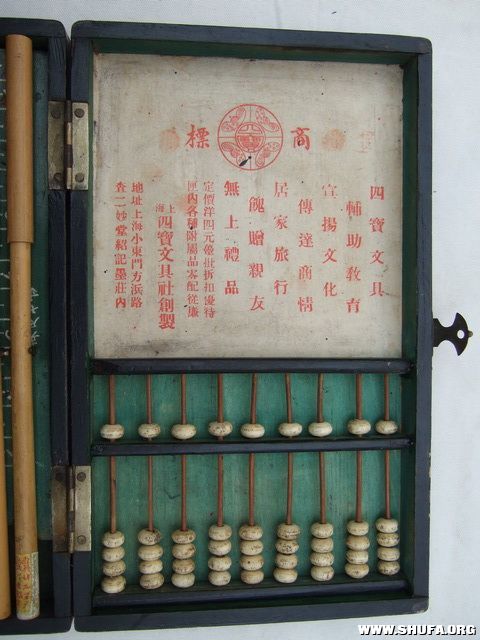 商標
四寶文具
輔助教育
宣揚文化
傳達商情
居家旅行
餽贈親友
無上禮品
定價洋四元整批折扣優待
匣內各種附屬品零配從廉
上海四寶文具社創製
地址上海小東門方浜路
查二妙堂紹記墨莊內
WWW.SHUFA.ORG